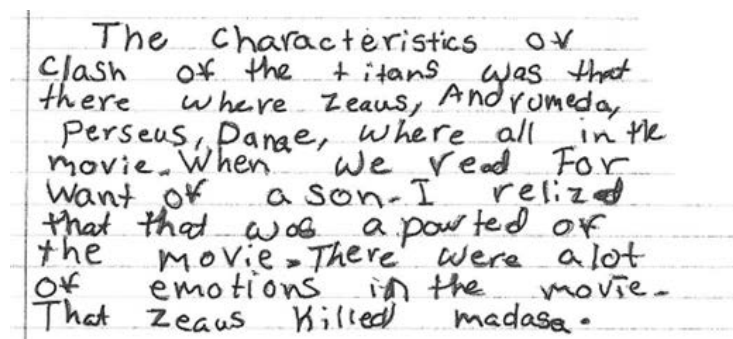 The Characteristics of
Clash of the titans was that
there where Zeaus, Andrumeda,
Perseus, Danae, where all in the
movie. When we read For
Want of a son. I relized
that that was a powted of
the movie. There were alot
of emotions in the movie.
That Zeaus Killed madasa.